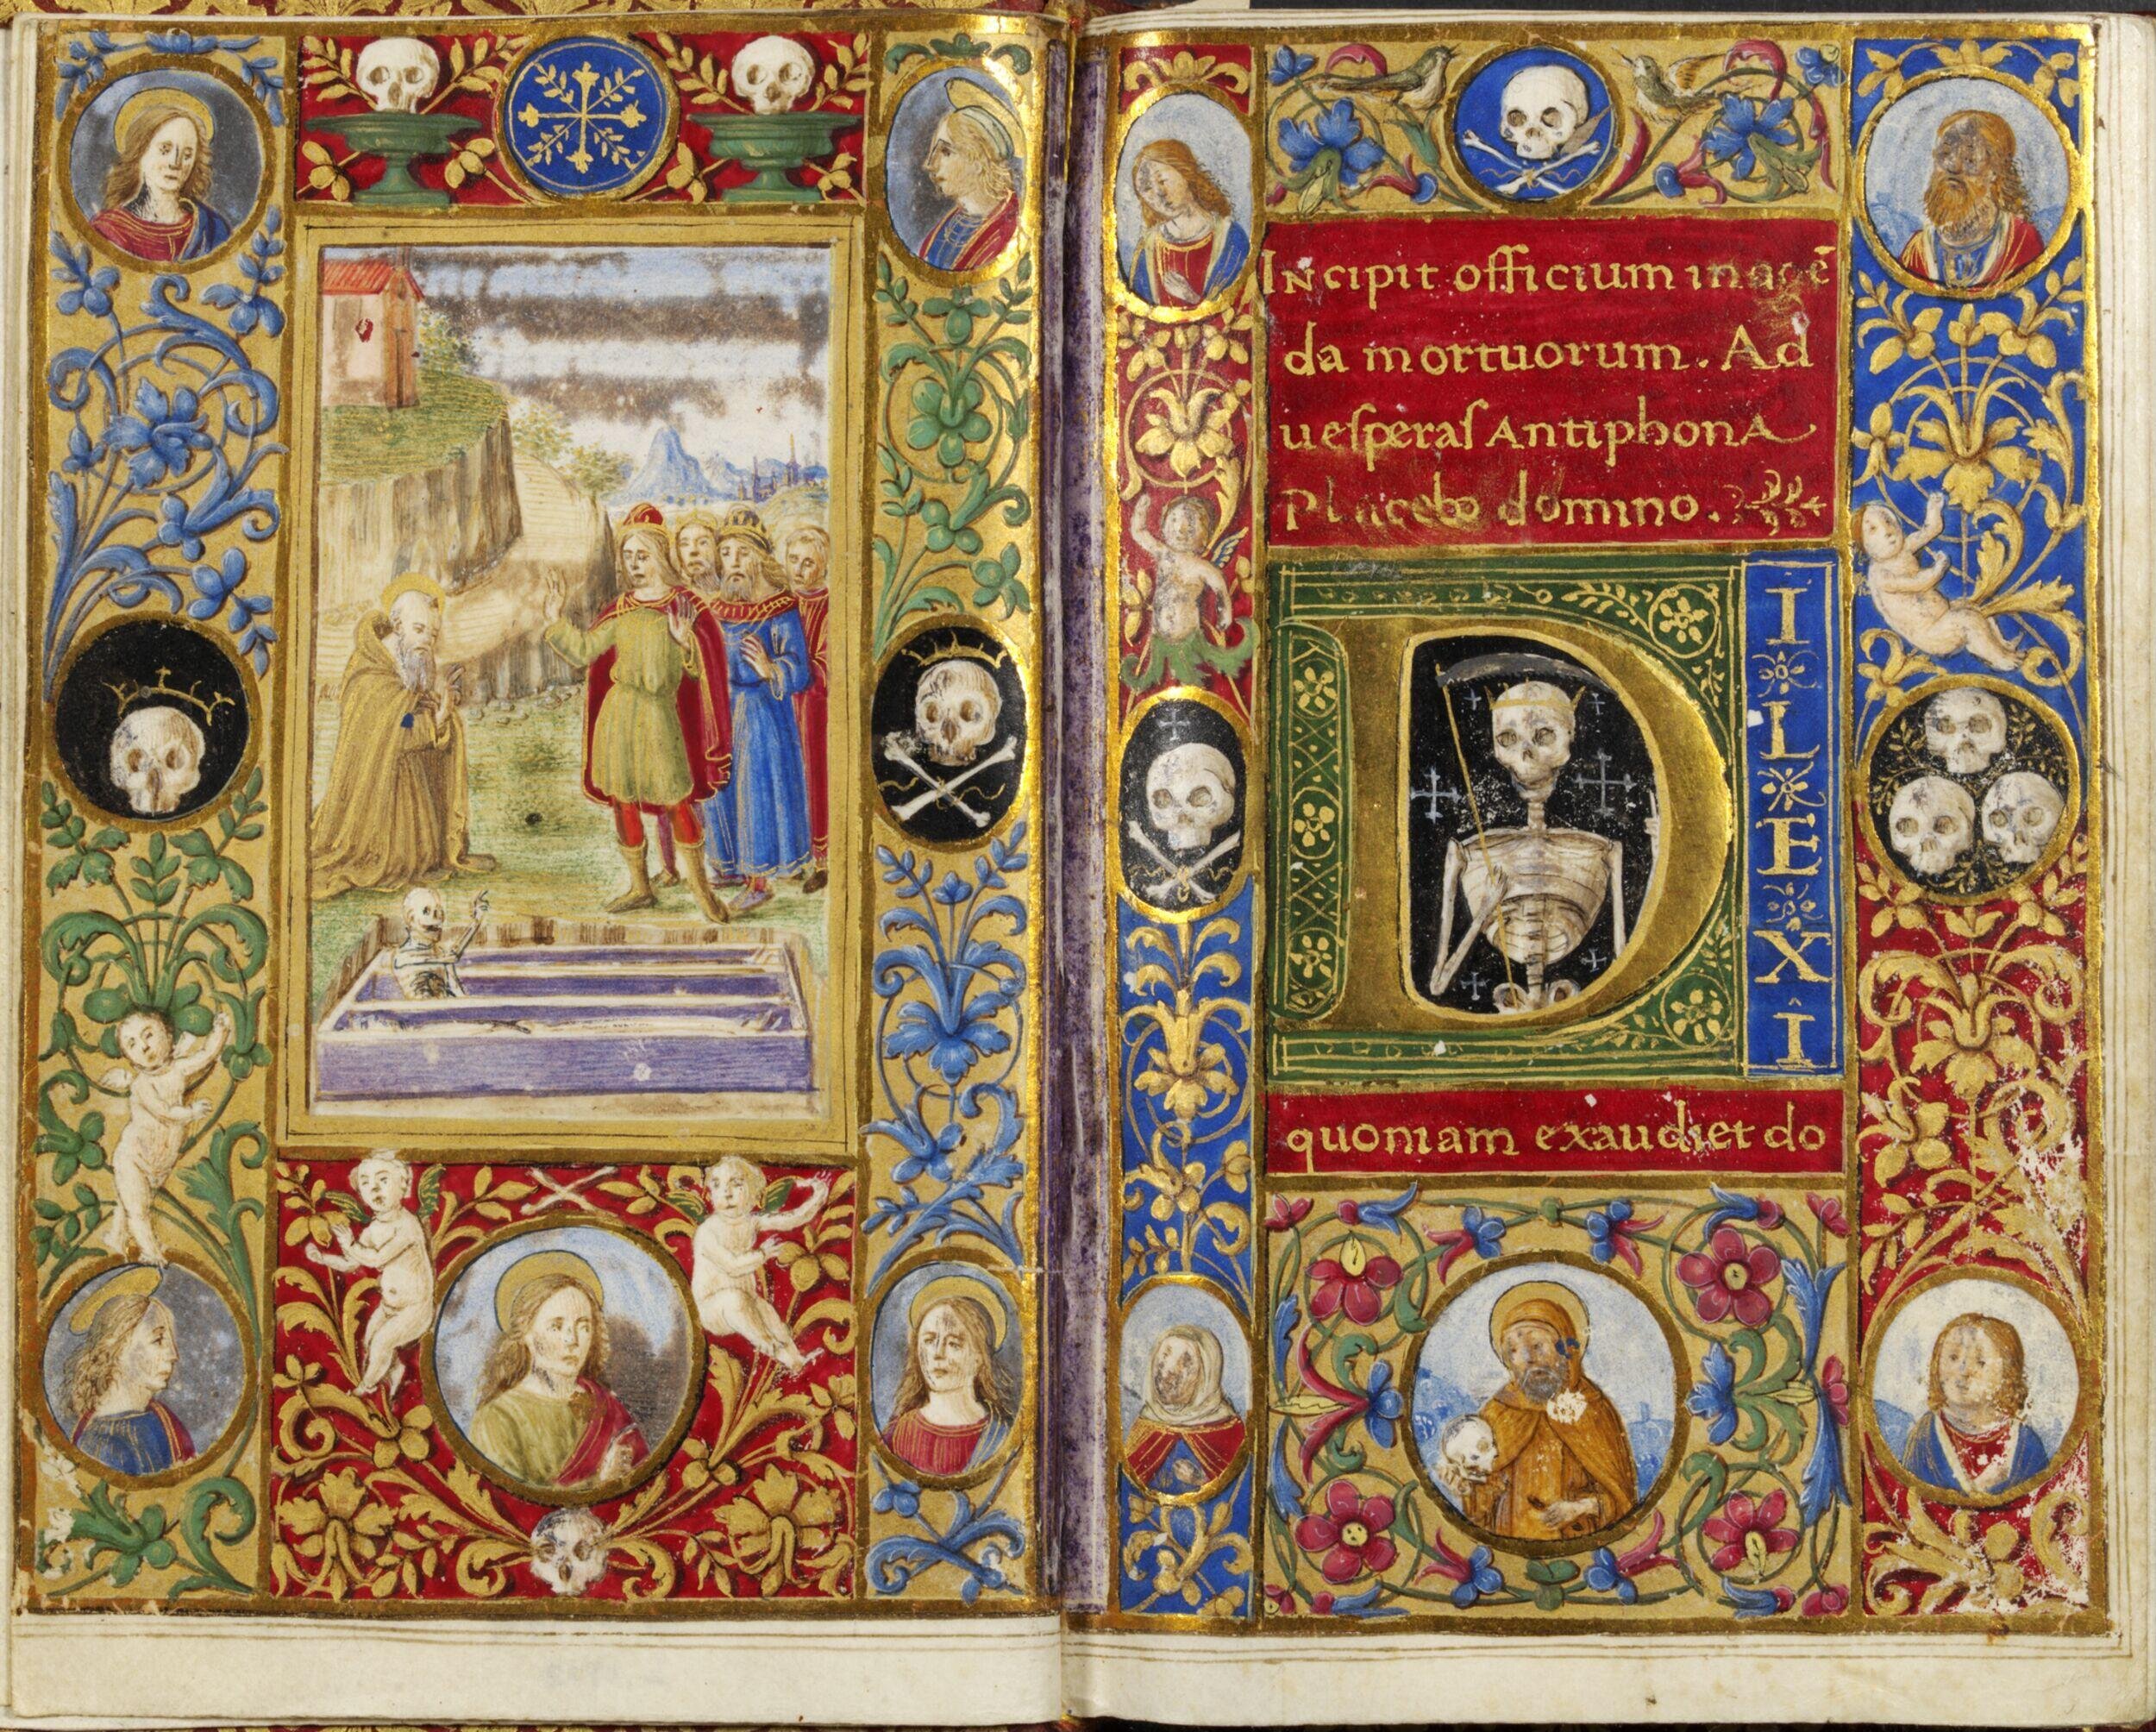 Incipit officium in agē
da mortuorum. Ad
uesperas Antiphona
Placebo domino.
DILEXI
quoniam exaudiet do